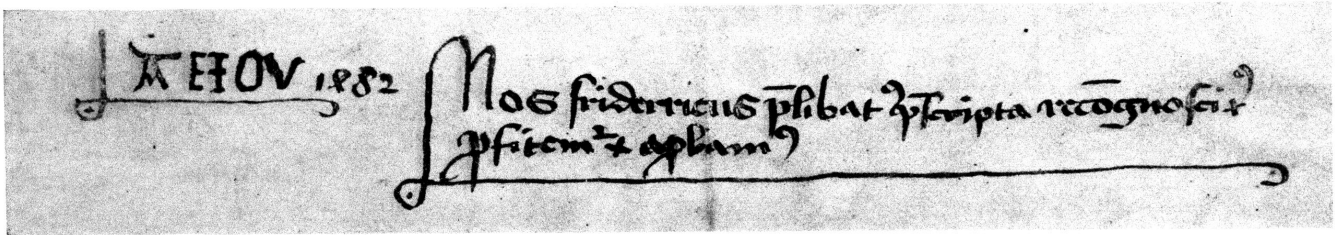 AEIOV 1482
Nos fridericus p̄libatꝰ p̄scripta recōgnosciꝰ
ꝓfitemr̉ & apꝓbamꝰ